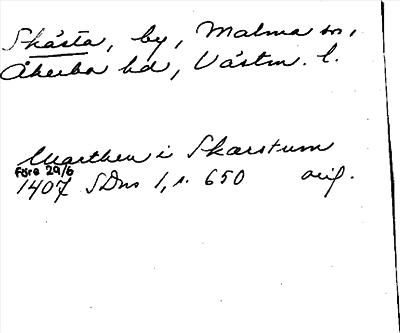 Skåsta, by, Malma sn,
Åkerbo hd, Västm. l.
Marthen i Skarstum
före 29/6
1407 SDns 1, s. 650 orig.